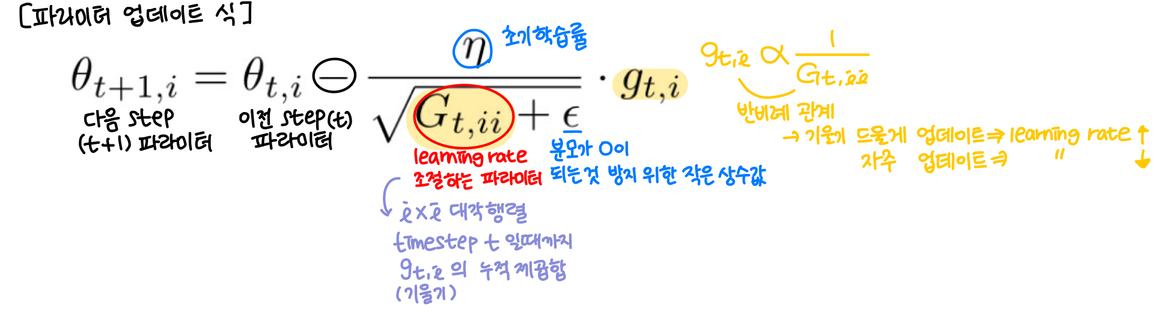 [파라미터 업데이트 식]
θt+1,i = θt,i − η / √(Gt,ii + ϵ) · gt,i
초기학습률
다음 step
(t+1) 파라미터
이전 step(t)
파라미터
learning rate
조절하는 파라미터
분모가 0이
되는것 방지 위한 작은 상수값
i×i 대각행렬
timestep t 일때까지
gt,i 의 누적 제곱합
(기울기)
gt,i ∝ 1 / Gt,ii
반비례 관계
→ 기울기 드물게 업데이트⇒ learning rate ↑
자주 업데이트⇒ 〃 ↓